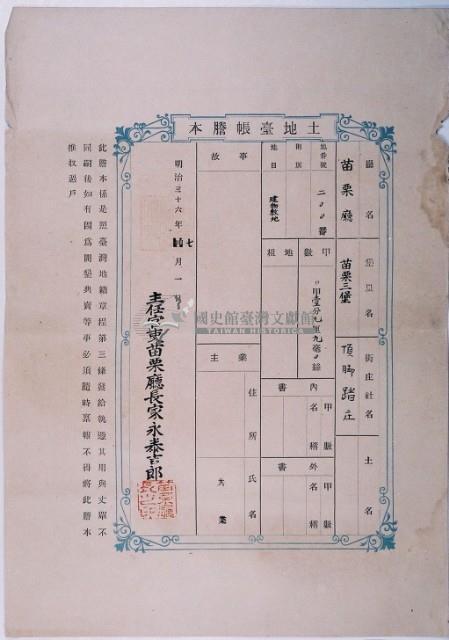 土地臺帳謄本
廳名
苗栗廳
堡里名
苗栗三堡
街庄社名
頂脚踏庄
土名
地番號
二〇〇番
地目
建物敷地
甲數
〇甲壹分〇厘九毫〇絲
地租
內書
甲數
名稱
外書
甲數
名稱
事故
業主
住所
氏名
大業
明治三十六年
七月一日
主任官吏苗栗廳長家永泰吉郎
此謄本係是照臺灣地籍章程第三條發給執憑其用與丈單不
同嗣後如有因為開墾典賣等事必須隨時稟報不得將此謄本
推收過戶
國史館臺灣文獻館
TAIWAN HISTORICA